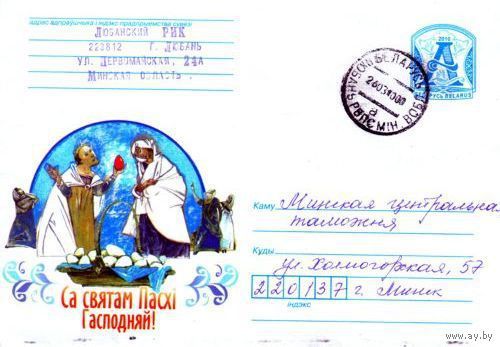 адрас адпраўшчыка і індэкс прадпрыемства сувязі
Любанский РИК
223812 г. Любань
ул. Первомайская, 24а
Минская область
2010
БЕЛАРУСЬ
260310
МІН. ВОБЛ
а
BELARUS
Каму Минская центральна
таможня
Куды
ул. Холмогорская, 57
220137 г. Минск
індэкс
Са святам Пасхі
Гасподняй!
www.ay.by